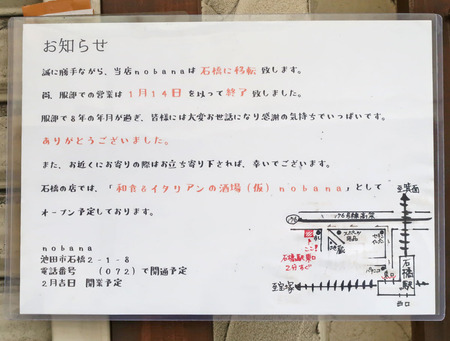 お知らせ
誠に勝手ながら、当店nobanaは石橋に移転致します。
尚、服部での営業は1月14日を以って終了致しました。
服部で8年の年月が過ぎ、皆様には大変お世話になり感謝の気持ちでいっぱいです。
ありがとうございました。
また、お近くにお寄りの際はお立ち寄り下されば、幸いでございます。
石橋の店では、「和食&イタリアンの酒場(仮)nobana」として
オープン予定しております。
nobana
池田市石橋2-1-8
電話番号 (072)で開通予定
2月吉日 開業予定
至箕面
176
176号線高架
ここ!
石橋駅東口
2分すぐ
東口
石橋駅
西口
至宝塚